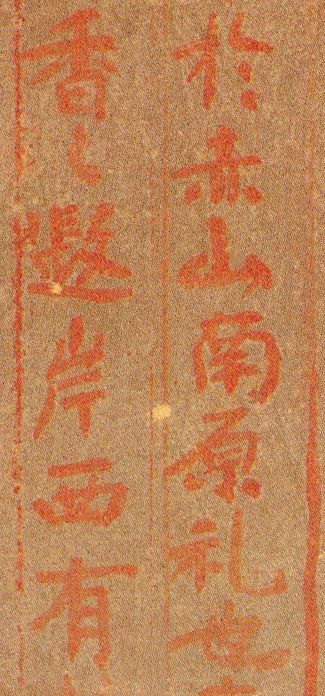 於赤山南原礼也
香々遐岸西有